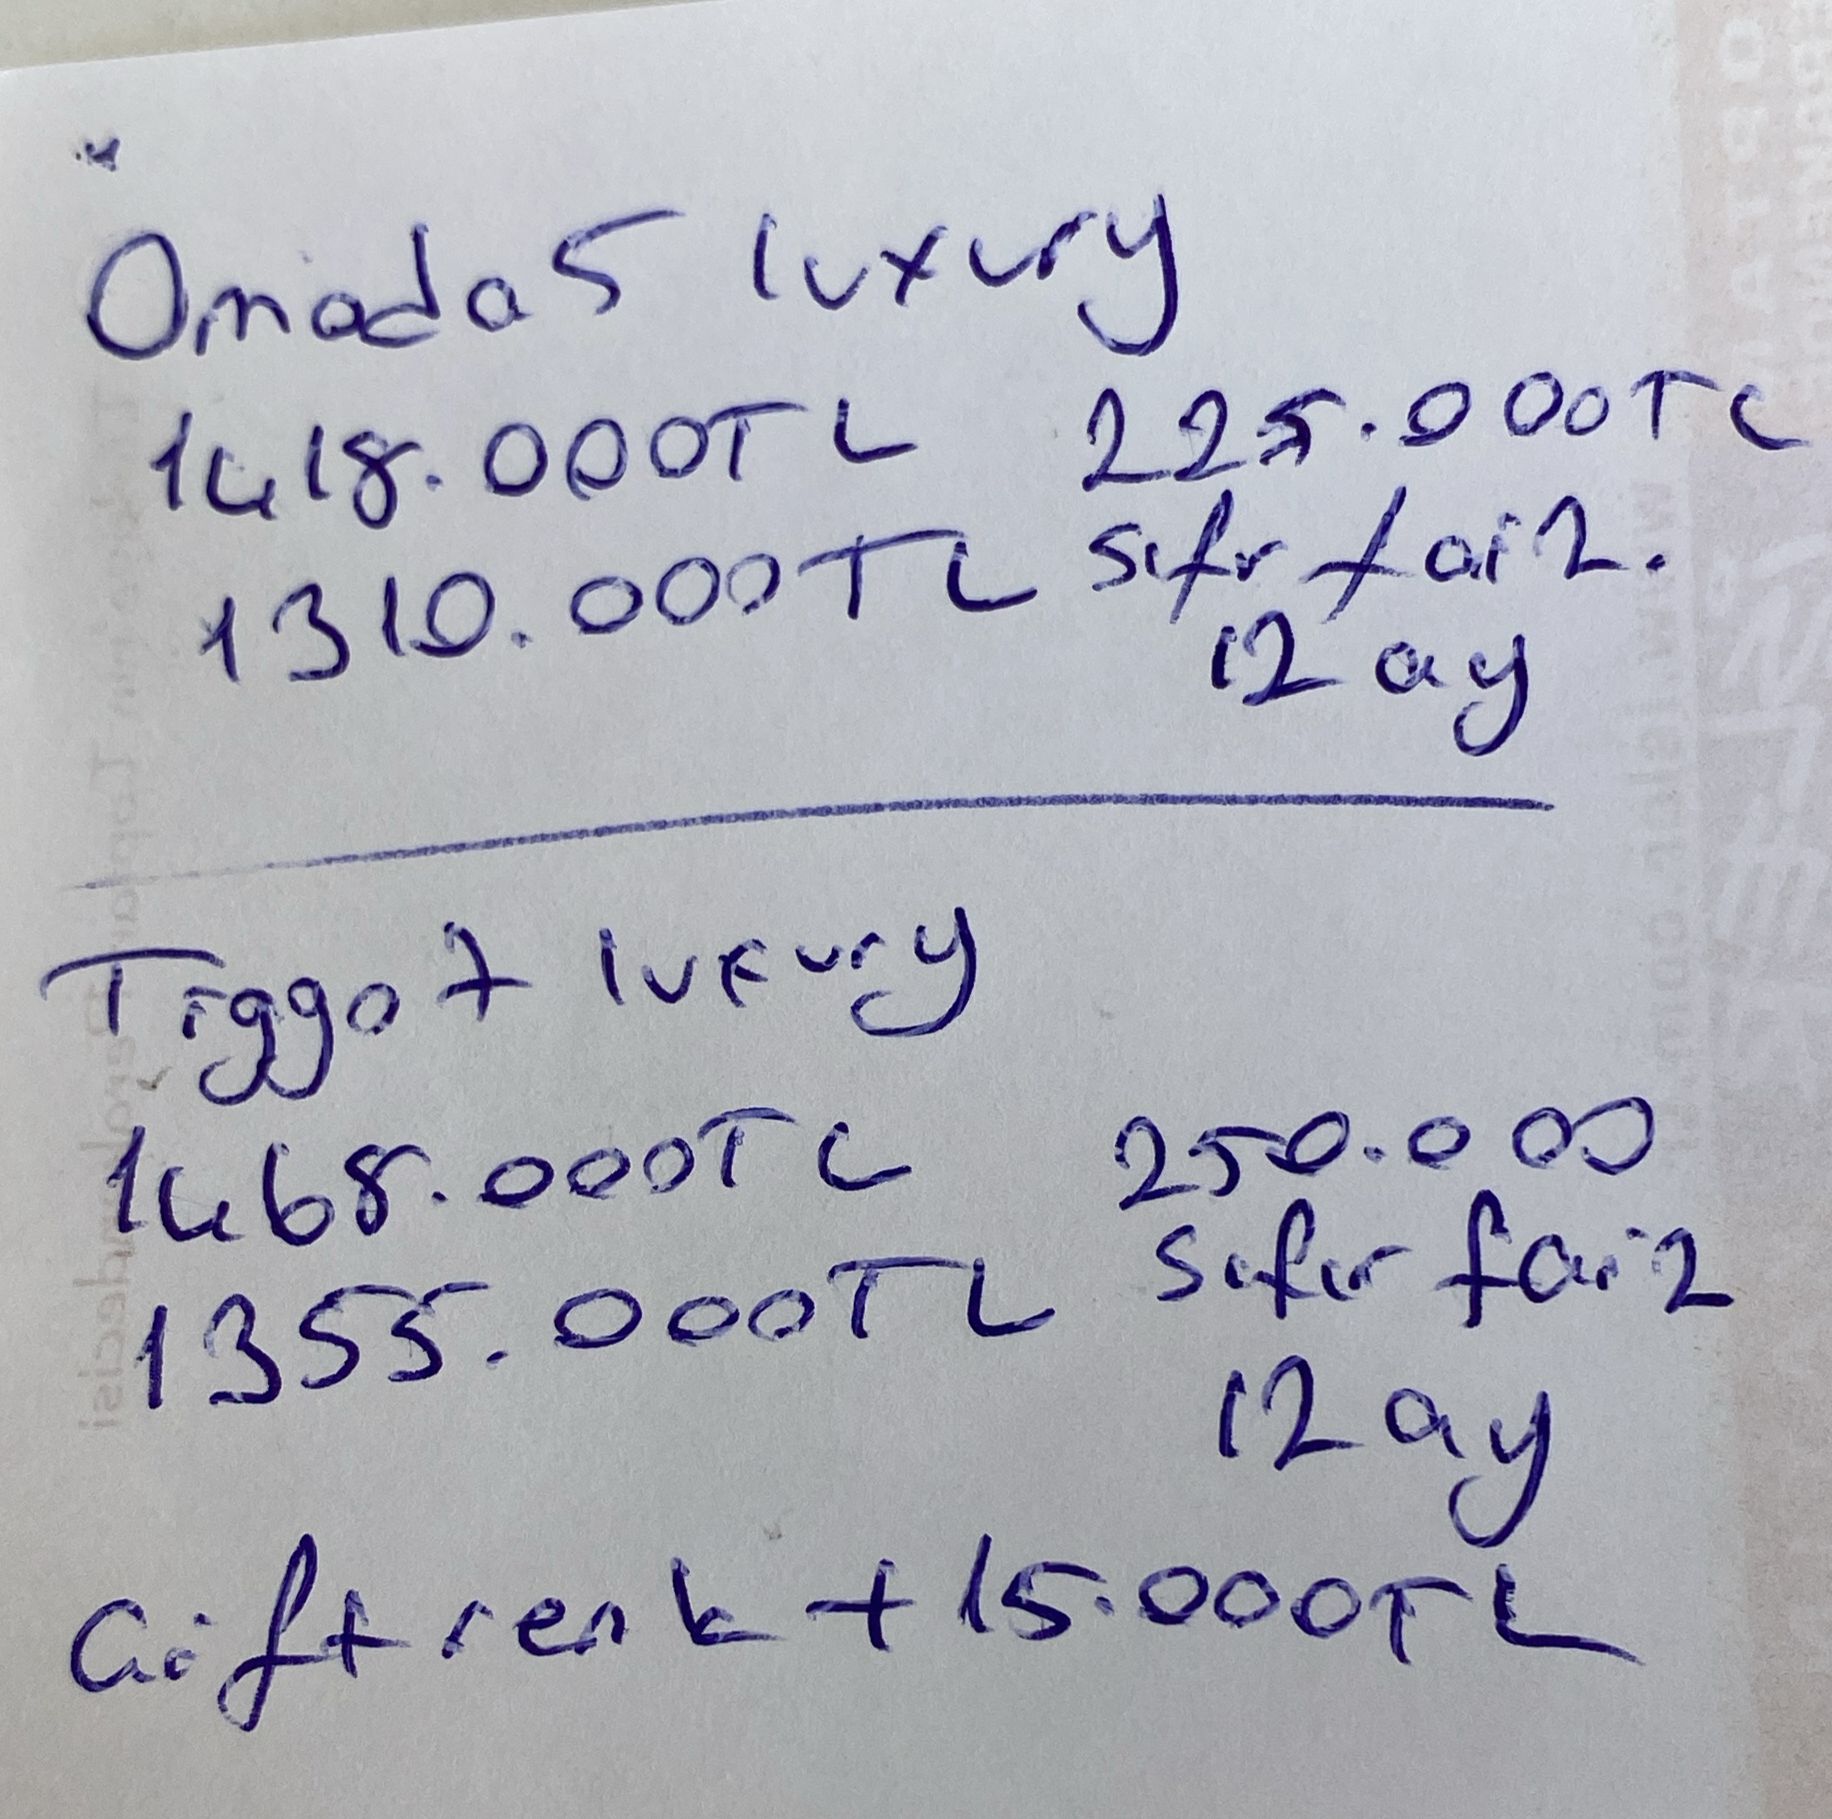 Omoda 5 luxury
1418.000TL 225.000TL
1310.000TL sıfır faiz.
12 ay
Tiggo 7 luxury
1468.000TL 250.000
1355.000TL Sıfır faiz
12 ay
Çift renk + 15.000TL